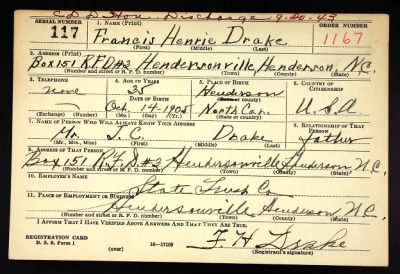 C D D Hon. Discharge 9-20-45
SERIAL NUMBER
1. NAME (Print)
ORDER NUMBER
117
Francis Henrie Drake
1167
(First) (Middle) (Last)
2. ADDRESS (Print)
Box 151 R.F.D #2 Hendersonville, Henderson, N.C.
(Number and street or R. F. D. number) (Town) (County) (State)
3. TELEPHONE
4. AGE IN YEARS
5. PLACE OF BIRTH
6. COUNTRY OF CITIZENSHIP
none
35
Henderson
DATE OF BIRTH
(Town or county)
U.S.A
Oct. 14-1905
North Car.
(Mo.) (Day) (Yr.)
(State or country)
7. NAME OF PERSON WHO WILL ALWAYS KNOW YOUR ADDRESS
8. RELATIONSHIP OF THAT PERSON
Mr. C. Drake
father
(Mr., Mrs., Miss) (First) (Middle) (Last)
9. ADDRESS OF THAT PERSON
Box 151 R.F.D #2 Hendersonville Henderson N.C.
(Number and street or R. F. D. number) (Town) (County) (State)
10. EMPLOYER'S NAME
State Co
11. PLACE OF EMPLOYMENT OR BUSINESS
Hendersonville Henderson N.C.
(Number and street or R. F. D. number) (Town) (County) (State)
I AFFIRM THAT I HAVE VERIFIED ABOVE ANSWERS AND THAT THEY ARE TRUE.
REGISTRATION CARD
D. S. S. Form 1
(over)
16-17105
F. H Drake
(Registrant's signature)